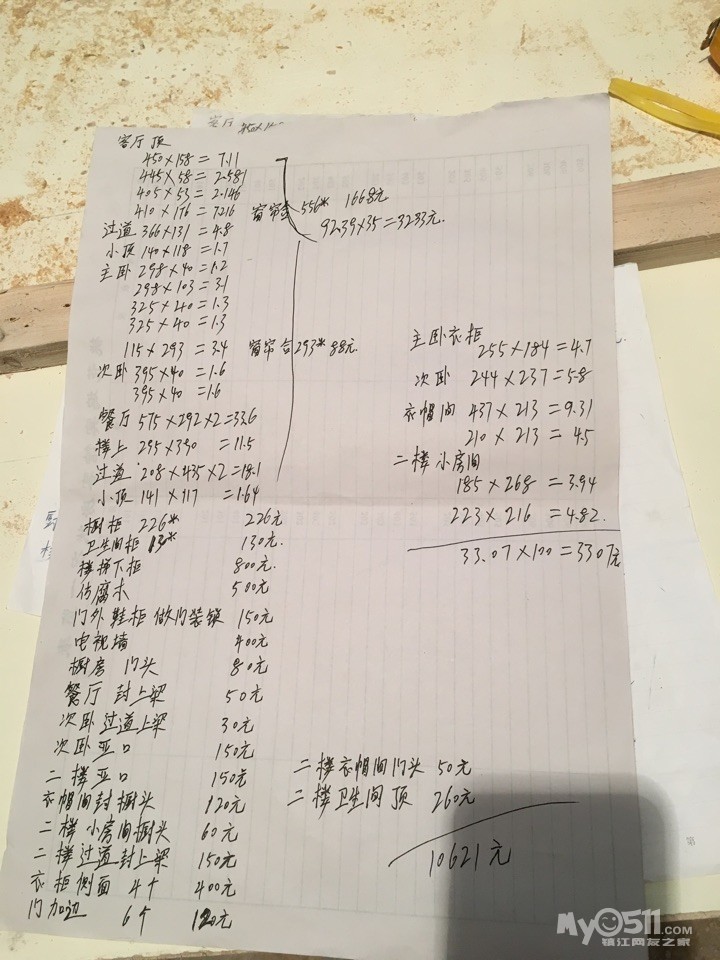 客厅顶
450×158=7.11
445×58=2.581
405×53=2.146
410×176=7.216
窗帘合 556* 1668元
92.39×35=3233元.
过道 366×131=4.8
小顶 140×118=1.7
主卧 298×40=1.2
298×103=3.1
325×40=1.3
325×40=1.3
115×293=3.4 窗帘合293* 88元.
次卧 395×40=1.6
395×40=1.6
餐厅 575×292×2=33.6
楼上 295×390=11.5
过道 208×435×2=18.1
小顶 141×117=1.64
橱柜 226* 226元
卫生间柜 130* 130元.
楼梯下柜 800元.
防腐木 500元
门外鞋柜 做门装锁 150元
电视墙 400元
橱房 门头 80元
餐厅 封上梁 50元
次卧过道上梁 30元
次卧亚口 150元
二楼亚口 150元
衣帽间封橱头 120元
二楼小房间橱头 60元
二楼过道封上梁 150元
衣柜侧面 4个 400元
门加边 6个 120元
主卧衣柜
255×184=4.7
次卧 244×237=5.8
衣帽间 437×213=9.31
210×213=4.5
二楼小房间
185×268=3.94
223×216=4.82
33.07×100=3307元
二楼衣帽间门头 50元
二楼卫生间顶 260元
10621元
My0511.COM
镇江网友之家